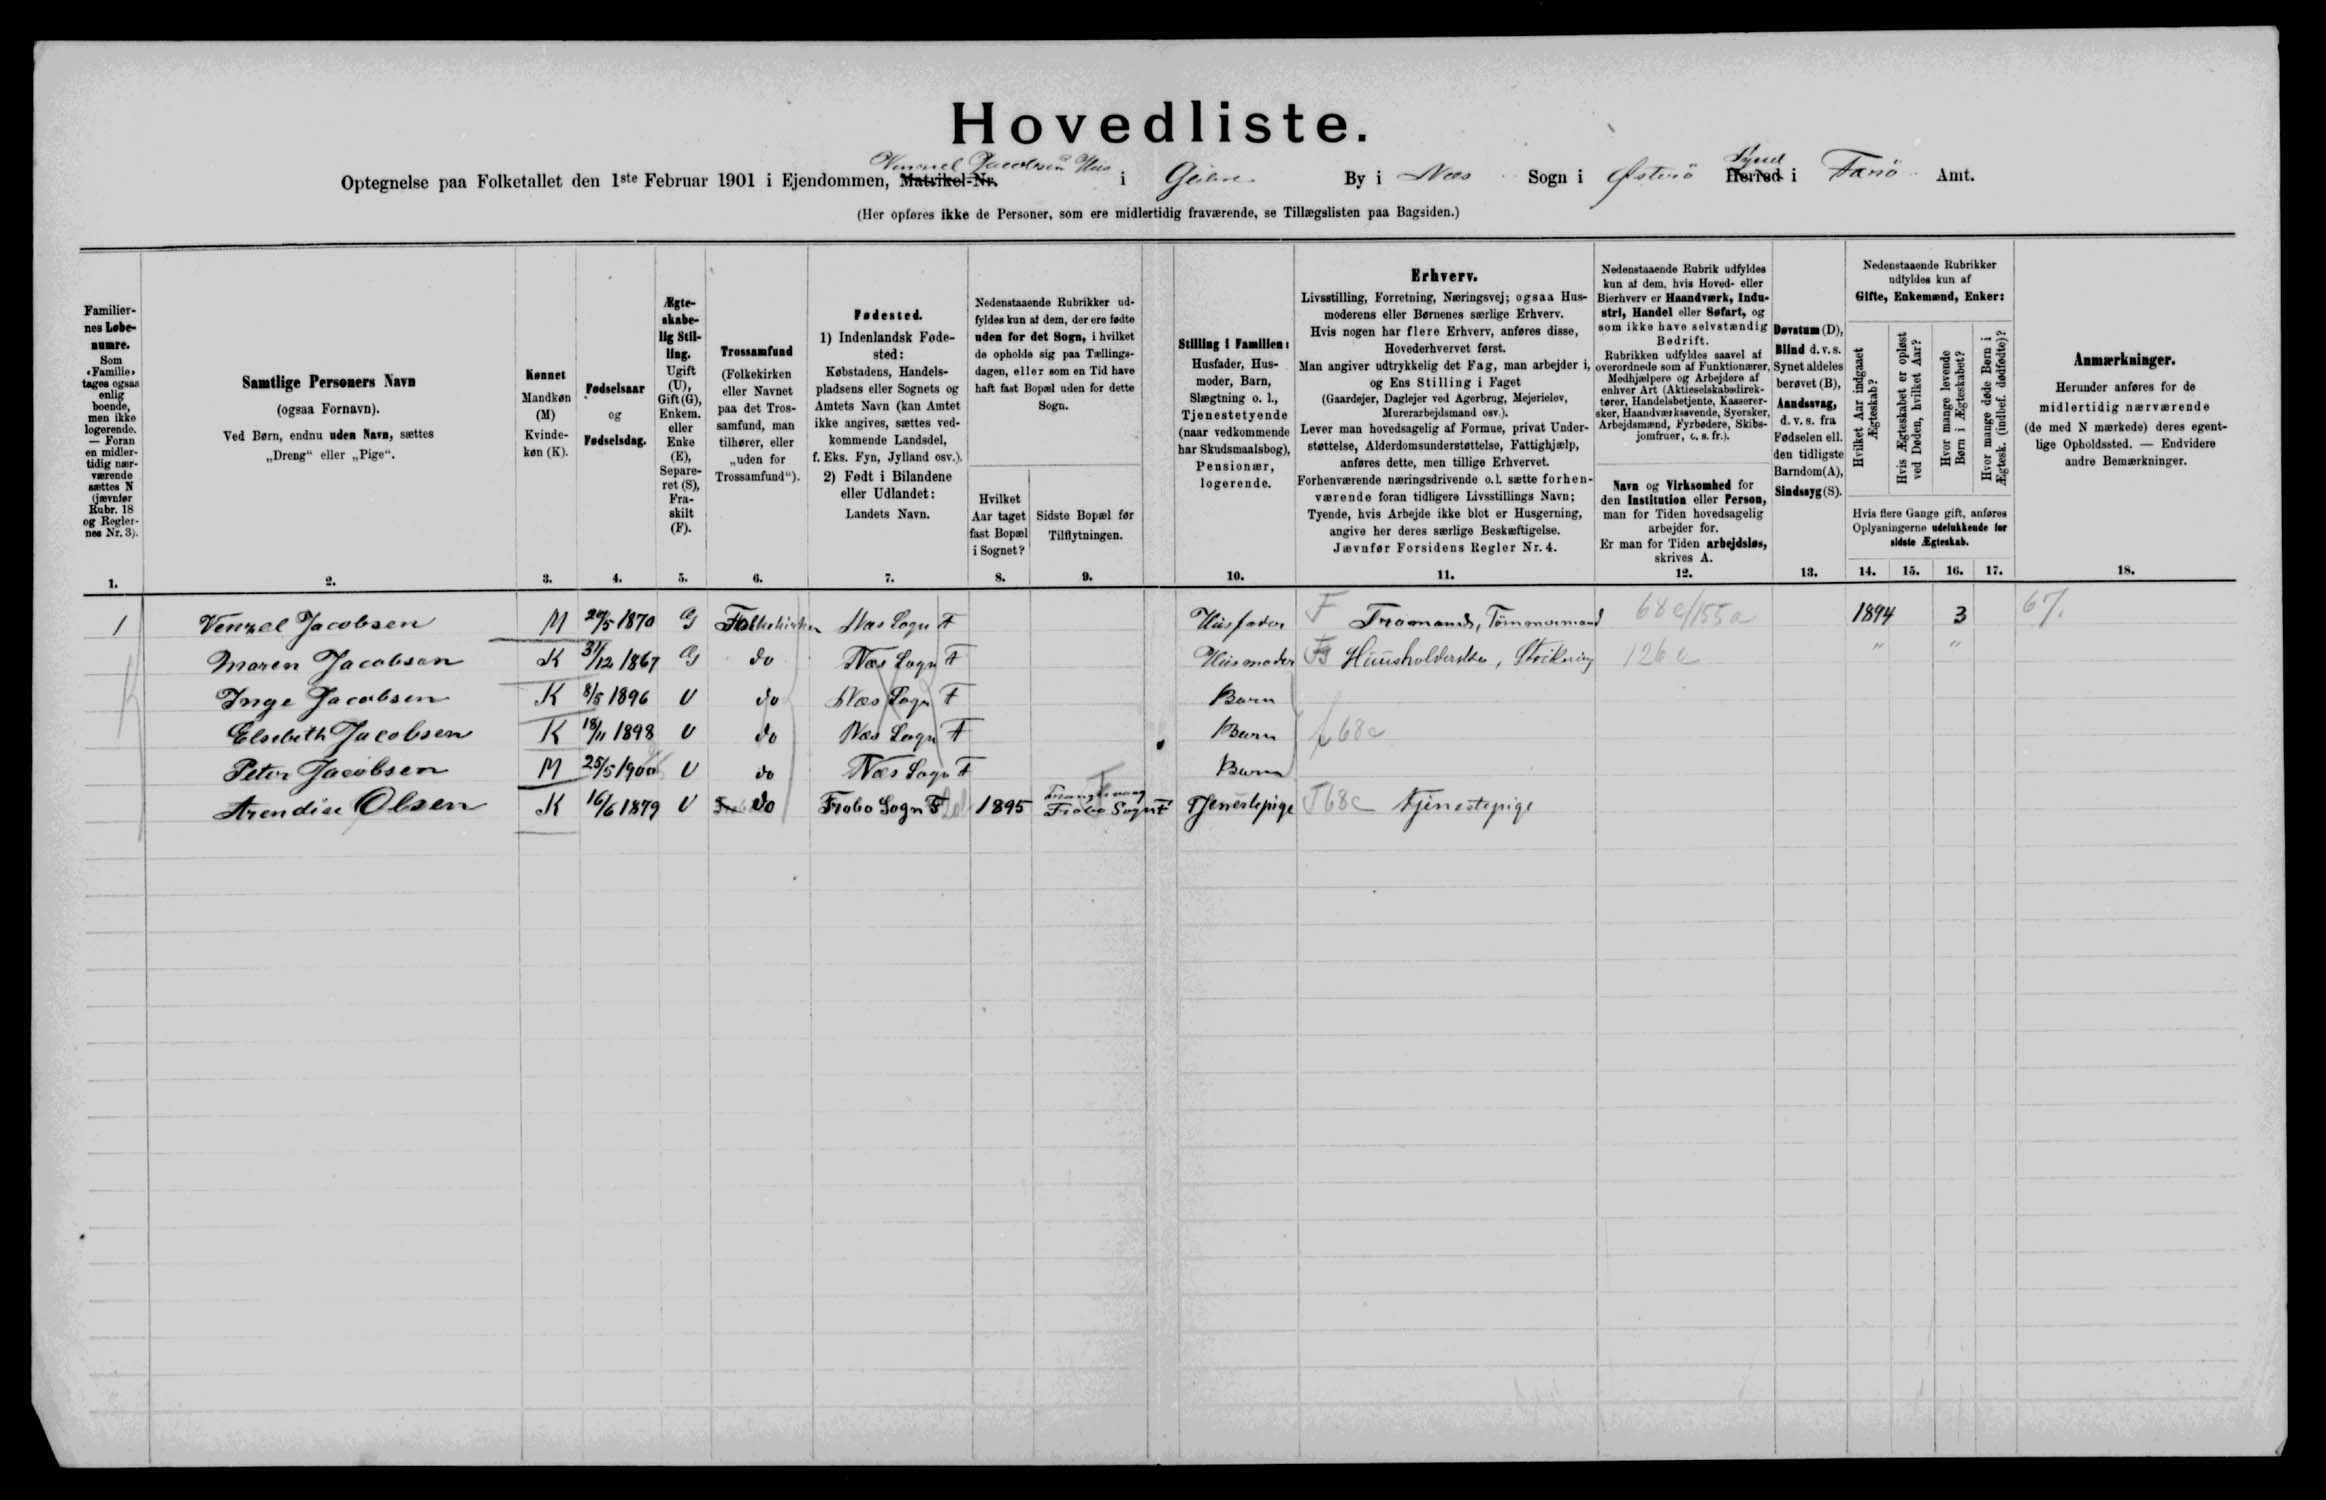 Hovedliste.
Venzel Jacobsens Hus
Optegnelse paa Folketallet den 1ste Februar 1901 i Ejendommen, Matrikel-Nr. i By i Næs Sogn i Østerø Syssel Herred i Færø Amt.
(Her opføres ikke de Personer, som ere midlertidig fraværende, se Tillægslisten paa Bagsiden.)
Familiernes Løbenumre.
Som «Familie» tages ogsaa enlig boende, men ikke logerende. — Foran en midlertidig nærværende sættes N (jævnfør Rubr. 18 og Reglernes Nr. 3).
Samtlige Personers Navn
(ogsaa Fornavn).
Ved Børn, endnu uden Navn, sættes
„Dreng" eller „Pige".
Kønnet
Mandkøn (M)
Kvindekøn (K).
Fødselsaar
og
Fødselsdag.
Ægteskabelig Stilling.
Ugift (U), Gift (G), Enkem. eller Enke (E), Separeret (S), Fraskilt (F).
Trossamfund
(Folkekirken eller Navnet paa det Trossamfund, man tilhører, eller „uden for Trossamfund").
Fødested.
1) Indenlandsk Fødested:
Købstadens, Handelspladsens eller Sognets og Amtets Navn (kan Amtet ikke angives, sættes vedkommende Landsdel, f. Eks. Fyn, Jylland osv.).
2) Født i Bilandene eller Udlandet:
Landets Navn.
Nedenstaaende Rubrikker udfyldes kun af dem, der ere fødte uden for det Sogn, i hvilket de opholde sig paa Tællingsdagen, eller som en Tid have haft fast Bopæl uden for dette Sogn.
Hvilket Aar taget fast Bopæl i Sognet?
Sidste Bopæl før Tilflytningen.
Stilling i Familien:
Husfader, Husmoder, Barn, Slægtning o. l., Tjenestetyende (naar vedkommende har Skudsmaalsbog), Pensionær, logerende.
Erhverv.
Livsstilling, Forretning, Næringsvej; ogsaa Husmoderens eller Børnenes særlige Erhverv.
Hvis nogen har flere Erhverv, anføres disse, Hovederhvervet først.
Man angiver udtrykkelig det Fag, man arbejder i, og Ens Stilling i Faget
(Gaardejer, Daglejer ved Agerbrug, Mejerielev, Murerarbejdsmand osv.).
Lever man hovedsagelig af Formue, privat Understøttelse, Alderdomsunderstøttelse, Fattighjælp, anføres dette, men tillige Erhvervet.
Forhenværende næringsdrivende o.l. sætte forhenværende foran tidligere Livsstillings Navn; Tyende, hvis Arbejde ikke blot er Husgerning, angive her deres særlige Beskæftigelse.
Jævnfør Forsidens Regler Nr. 4.
Nedenstaaende Rubrik udfyldes kun af dem, hvis Hoved- eller Bierhverv er Haandværk, Industri, Handel eller Søfart, og som ikke have selvstændig Bedrift.
Rubrikken udfyldes saavel af overordnede som af Funktionærer, Medhjælpere og Arbejdere af enhver Art (Aktieselskabsdirektører, Handelsbetjente, Kasserersker, Haandværkssvende, Syersker, Arbejdsmænd, Fyrbødere, Skibsjomfruer, o. s. fr.).
Navn og Virksomhed for den Institution eller Person, man for Tiden hovedsagelig arbejder for.
Er man for Tiden arbejdsløs, skrives A.
Døvstum (D),
Blind d. v. s. Synet aldeles berøvet (B),
Aandssvag, d. v. s. fra Fødselen ell. den tidligste Barndom (A),
Sindssyg (S).
Nedenstaaende Rubrikker udfyldes kun af
Gifte, Enkemænd, Enker:
Hvilket Aar indgaaet Ægteskab?
Hvis Ægteskabet er opløst ved Døden, hvilket Aar?
Hvor mange levende Børn i Ægteskabet?
Hvor mange døde Børn i Ægtesk. (indbef. dødfødte)?
Hvis flere Gange gift, anføres Oplysningerne udelukkende for sidste Ægteskab.
Anmærkninger.
Herunder anføres for de midlertidig nærværende (de med N mærkede) deres egentlige Opholdssted. — Endvidere andre Bemærkninger.
1. 2. 3. 4. 5. 6. 7. 8. 9. 10. 11. 12. 13. 14. 15. 16. 17. 18.
1 Venzel Jacobsen M 1870 G Folkekirken Næs Sogn F Husfader F Tømmermand 68c/155a 1894 3 67.
Maren Jacobsen K 31/12 1867 G do Næs Sogn F Husmoder Huusholderske, Strikning 126a " "
Inge Jacobsen K 8/5 1896 U do Næs Sogn F Barn
Elsebeth Jacobsen K 18/11 1898 U do Næs Sogn F Barn 68c
Peter Jacobsen M 25/5 1900 U do Næs Sogn F Barn
Arendise Olsen K 16/6 1879 U do Frobo Sogn F 1895 Frobo Sogn F Tjenestepige T68c Tjenestepige